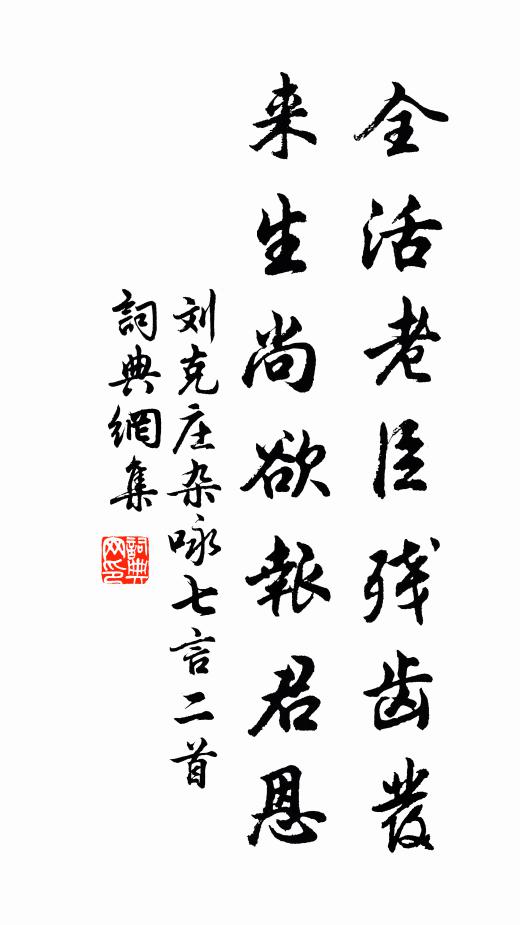 全活老臣残齿发
来生尚欲報君恩
刘克庄杂咏七言二首
詞典網集
詞典网印